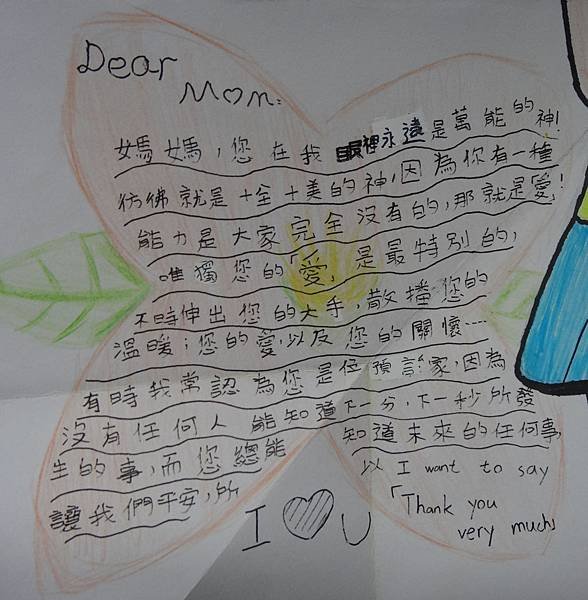 Dear
Mom:
媽媽，您在我眼裡永遠是萬能的神!
仿佛就是十全十美的神，因為你有一種
能力是大家完全沒有的，那就是愛!
唯獨您的「愛」是最特別的，
不時伸出您的大手，散播您的
溫暖；您的愛，以及您的關懷……
有時我常認為您是位預言家，因為
沒有任何人能知道下一分，下一秒所發
生的事，而您總能知道未來的任何事
讓我們平安，所以 I want to say
「Thank you
very much」
I ♡ U